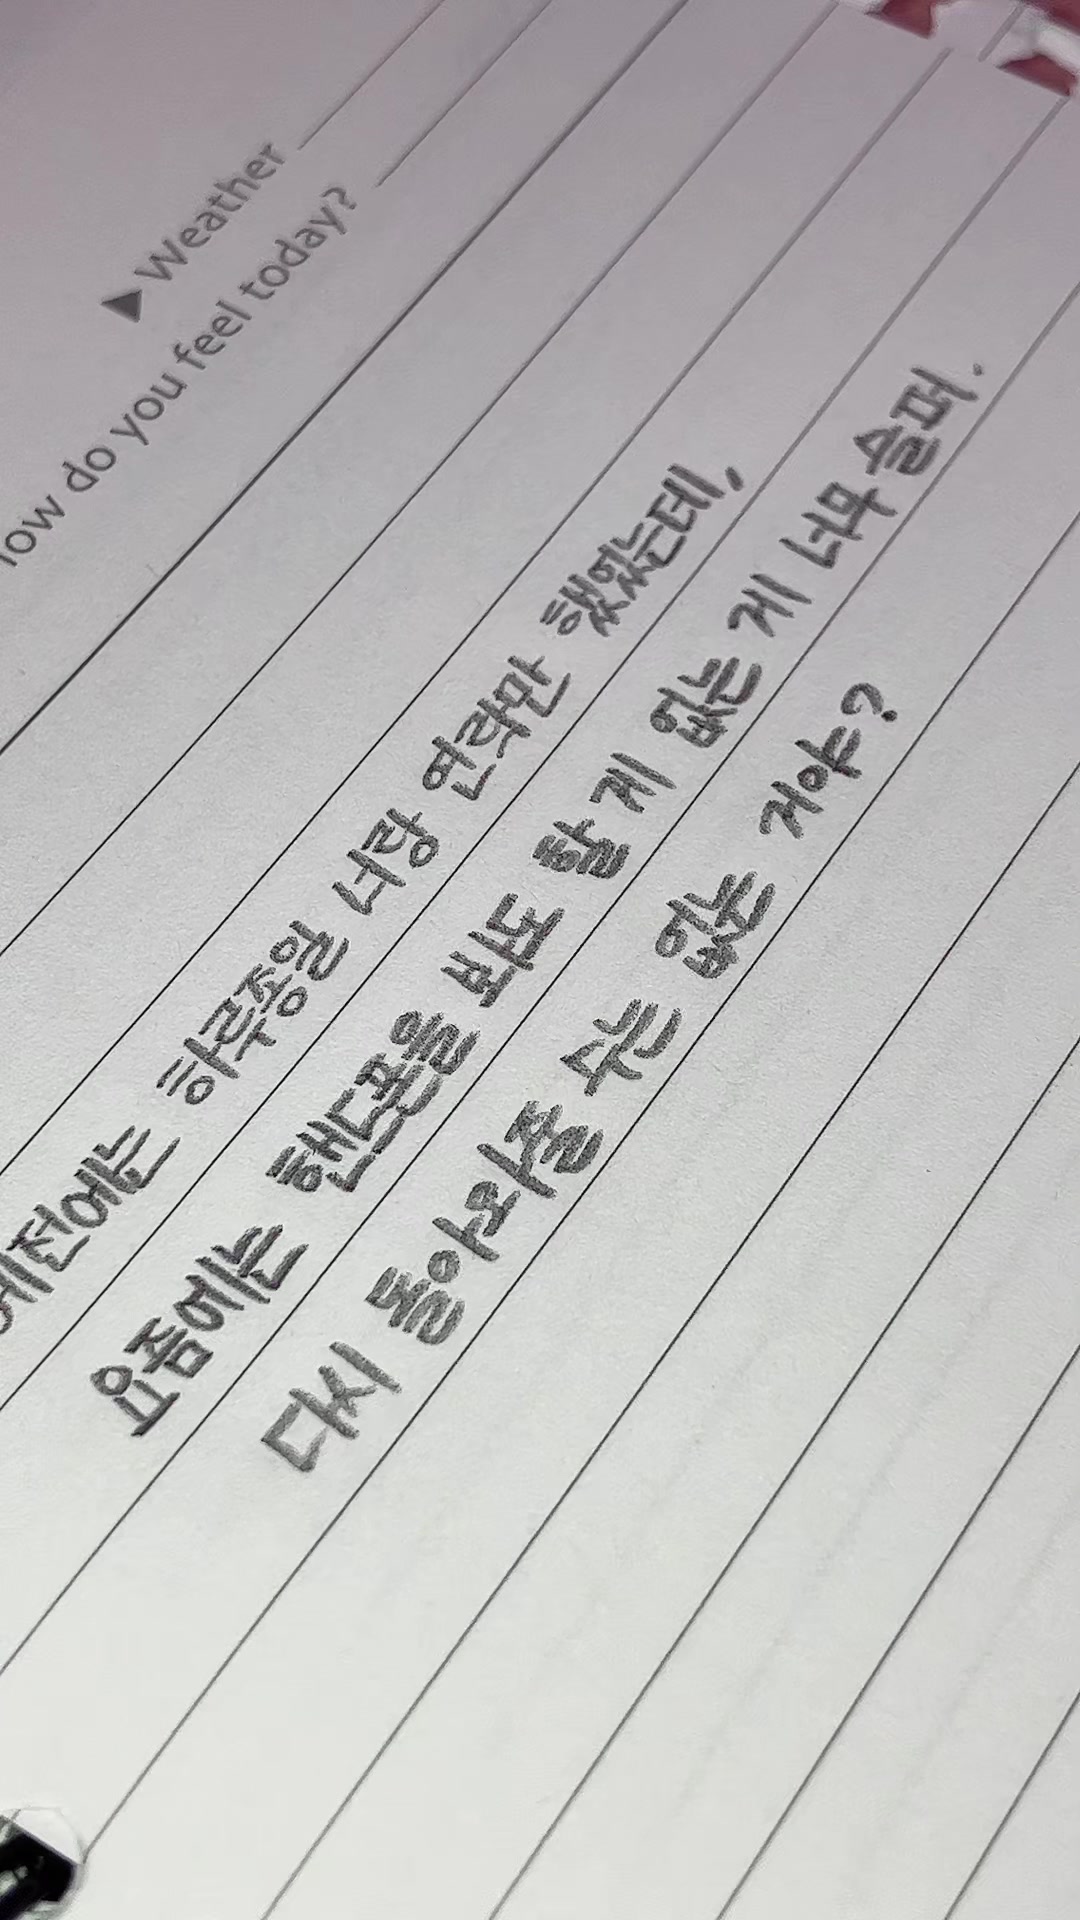 ▶Weather
How do you feel today?
예전에는 하루종일 너랑 연락만 했었는데,
요즘에는 핸드폰을 봐도 할 게 없는 게 너무 슬퍼.
다시 돌아와줄 수는 없는 거야?